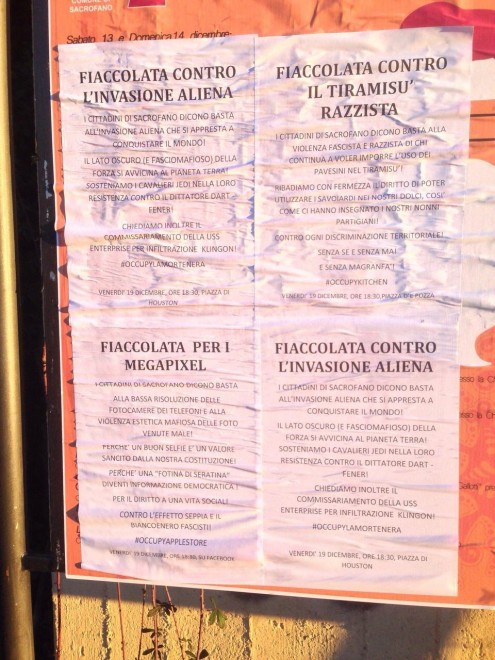 COMUNE DI
SACROFANO
Sabato 13 e Domenica 14 dicembre
FIACCOLATA CONTRO
L'INVASIONE ALIENA
I CITTADINI DI SACROFANO DICONO BASTA
ALL'INVASIONE ALIENA CHE SI APPRESTA A
CONQUISTARE IL MONDO!
IL LATO OSCURO (E FASCIOMAFIOSO) DELLA
FORZA SI AVVICINA AL PIANETA TERRA!
SOSTENIAMO I CAVALIERI JEDI NELLA LORO
RESISTENZA CONTRO IL DITTATORE DART -
FENER!
CHIEDIAMO INOLTRE IL
COMMISSARIAMENTO DELLA USS
ENTERPRISE PER INFILTRAZIONE KLINGON!
#OCCUPYLAMORTENERA
VENERDI' 19 DICEMBRE, ORE 18:30, PIAZZA DI
HOUSTON
FIACCOLATA CONTRO
IL TIRAMISU'
RAZZISTA
I CITTADINI DI SACROFANO DICONO BASTA ALLA
VIOLENZA FASCISTA E RAZZISTA DI CHI
CONTINUA A VOLER IMPORRE L'USO DEI
PAVESINI NEL TIRAMISU'!
RIBADIAMO CON FERMEZZA IL DIRITTO DI POTER
UTILIZZARE I SAVOIARDI NEI NOSTRI DOLCI, COSI'
COME CI HANNO INSEGNATO I NOSTRI NONNI
PARTIGIANI!
CONTRO OGNI DISCRIMINAZIONE TERRITORIALE!
SENZA SE E SENZA MA!
E SENZA MAGRANFA'!
#OCCUPYKITCHEN
VENERDI' 19 DICEMBRE, ORE 18:30, PIAZZA
FIACCOLATA PER I
MEGAPIXEL
I CITTADINI DI SACROFANO DICONO BASTA
ALLA BASSA RISOLUZIONE DELLE
FOTOCAMERE DEI TELEFONI E ALLA
VIOLENZA ESTETICA MAFIOSA DELLE FOTO
VENUTE MALE!
PERCHE' UN BUON SELFIE E' UN VALORE
SANCITO DALLA NOSTRA COSTITUZIONE!
PERCHE' UNA "FOTINA DI SERATINA"
DIVENTI INFORMAZIONE DEMOCRATICA!
PER IL DIRITTO A UNA VITA SOCIAL!
CONTRO L'EFFETTO SEPPIA E IL
BIANCOENERO FASCISTI!
#OCCUPYAPPLESTORE
VENERDI' 19 DICEMBRE, ORE SU FACEBOOK
FIACCOLATA CONTRO
L'INVASIONE ALIENA
I CITTADINI DI SACROFANO DICONO BASTA
ALL'INVASIONE ALIENA CHE SI APPRESTA A
CONQUISTARE IL MONDO!
IL LATO OSCURO (E FASCIOMAFIOSO) DELLA
FORZA SI AVVICINA AL PIANETA TERRA!
SOSTENIAMO I CAVALIERI JEDI NELLA LORO
RESISTENZA CONTRO IL DITTATORE DART -
FENER!
CHIEDIAMO INOLTRE IL
COMMISSARIAMENTO DELLA USS
ENTERPRISE PER INFILTRAZIONE KLINGON!
#OCCUPYLAMORTENERA
VENERDI' 19 DICEMBRE, ORE 18:30, PIAZZA DI
HOUSTON